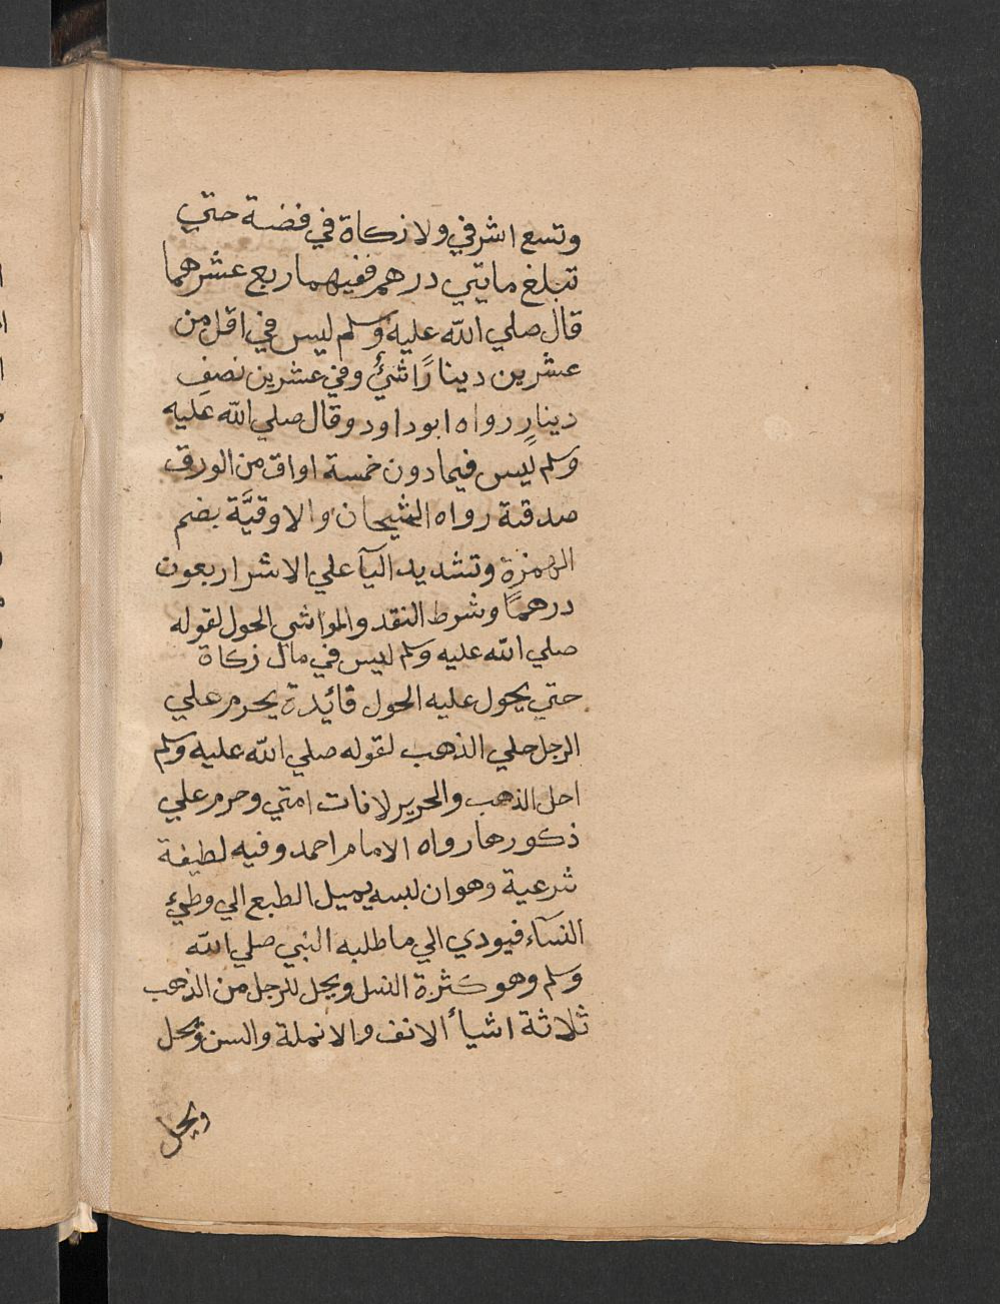 وتسع اشرفي ولا زكاة في فضة حتي
تبلغ مايتي درهم ففيهما ربع عشرهما
قال صلي الله عليه وسلم ليس في اقل من
عشرين دينارًا شئ وفي عشرين نصف
دينارٍ رواه ابو داود وقال صلي الله عليه
وسلم ليس فيما دون خمسة اواق من الورق
صدقة رواه الشيحان والاوقيَّة بضم
الهمزة وتشديد اليآ علي الاشر اربعون
درهمًا وشرط النقد والمواشي الحول لقوله
صلي الله عليه وسلم ليس في مال زكاة
حتي يحول عليه الحول فائدة يحرم علي
الرجل حلي الذهب لقوله صلي الله عليه وسلم
احل الذهب والحرير لاناث امتي وحرم علي
ذكورها رواه الامام احمد وفيه لطيفة
شرعية وهو ان لبسه يميل الطبع الي وطئ
النسآء فيودي الي ما طلبه النبي صلي الله
وسلم وهو كثرة النسل ويحل للرجل من الذهب
ثلاثة اشيأ الانف والانملة والسن ويحل
ويحل